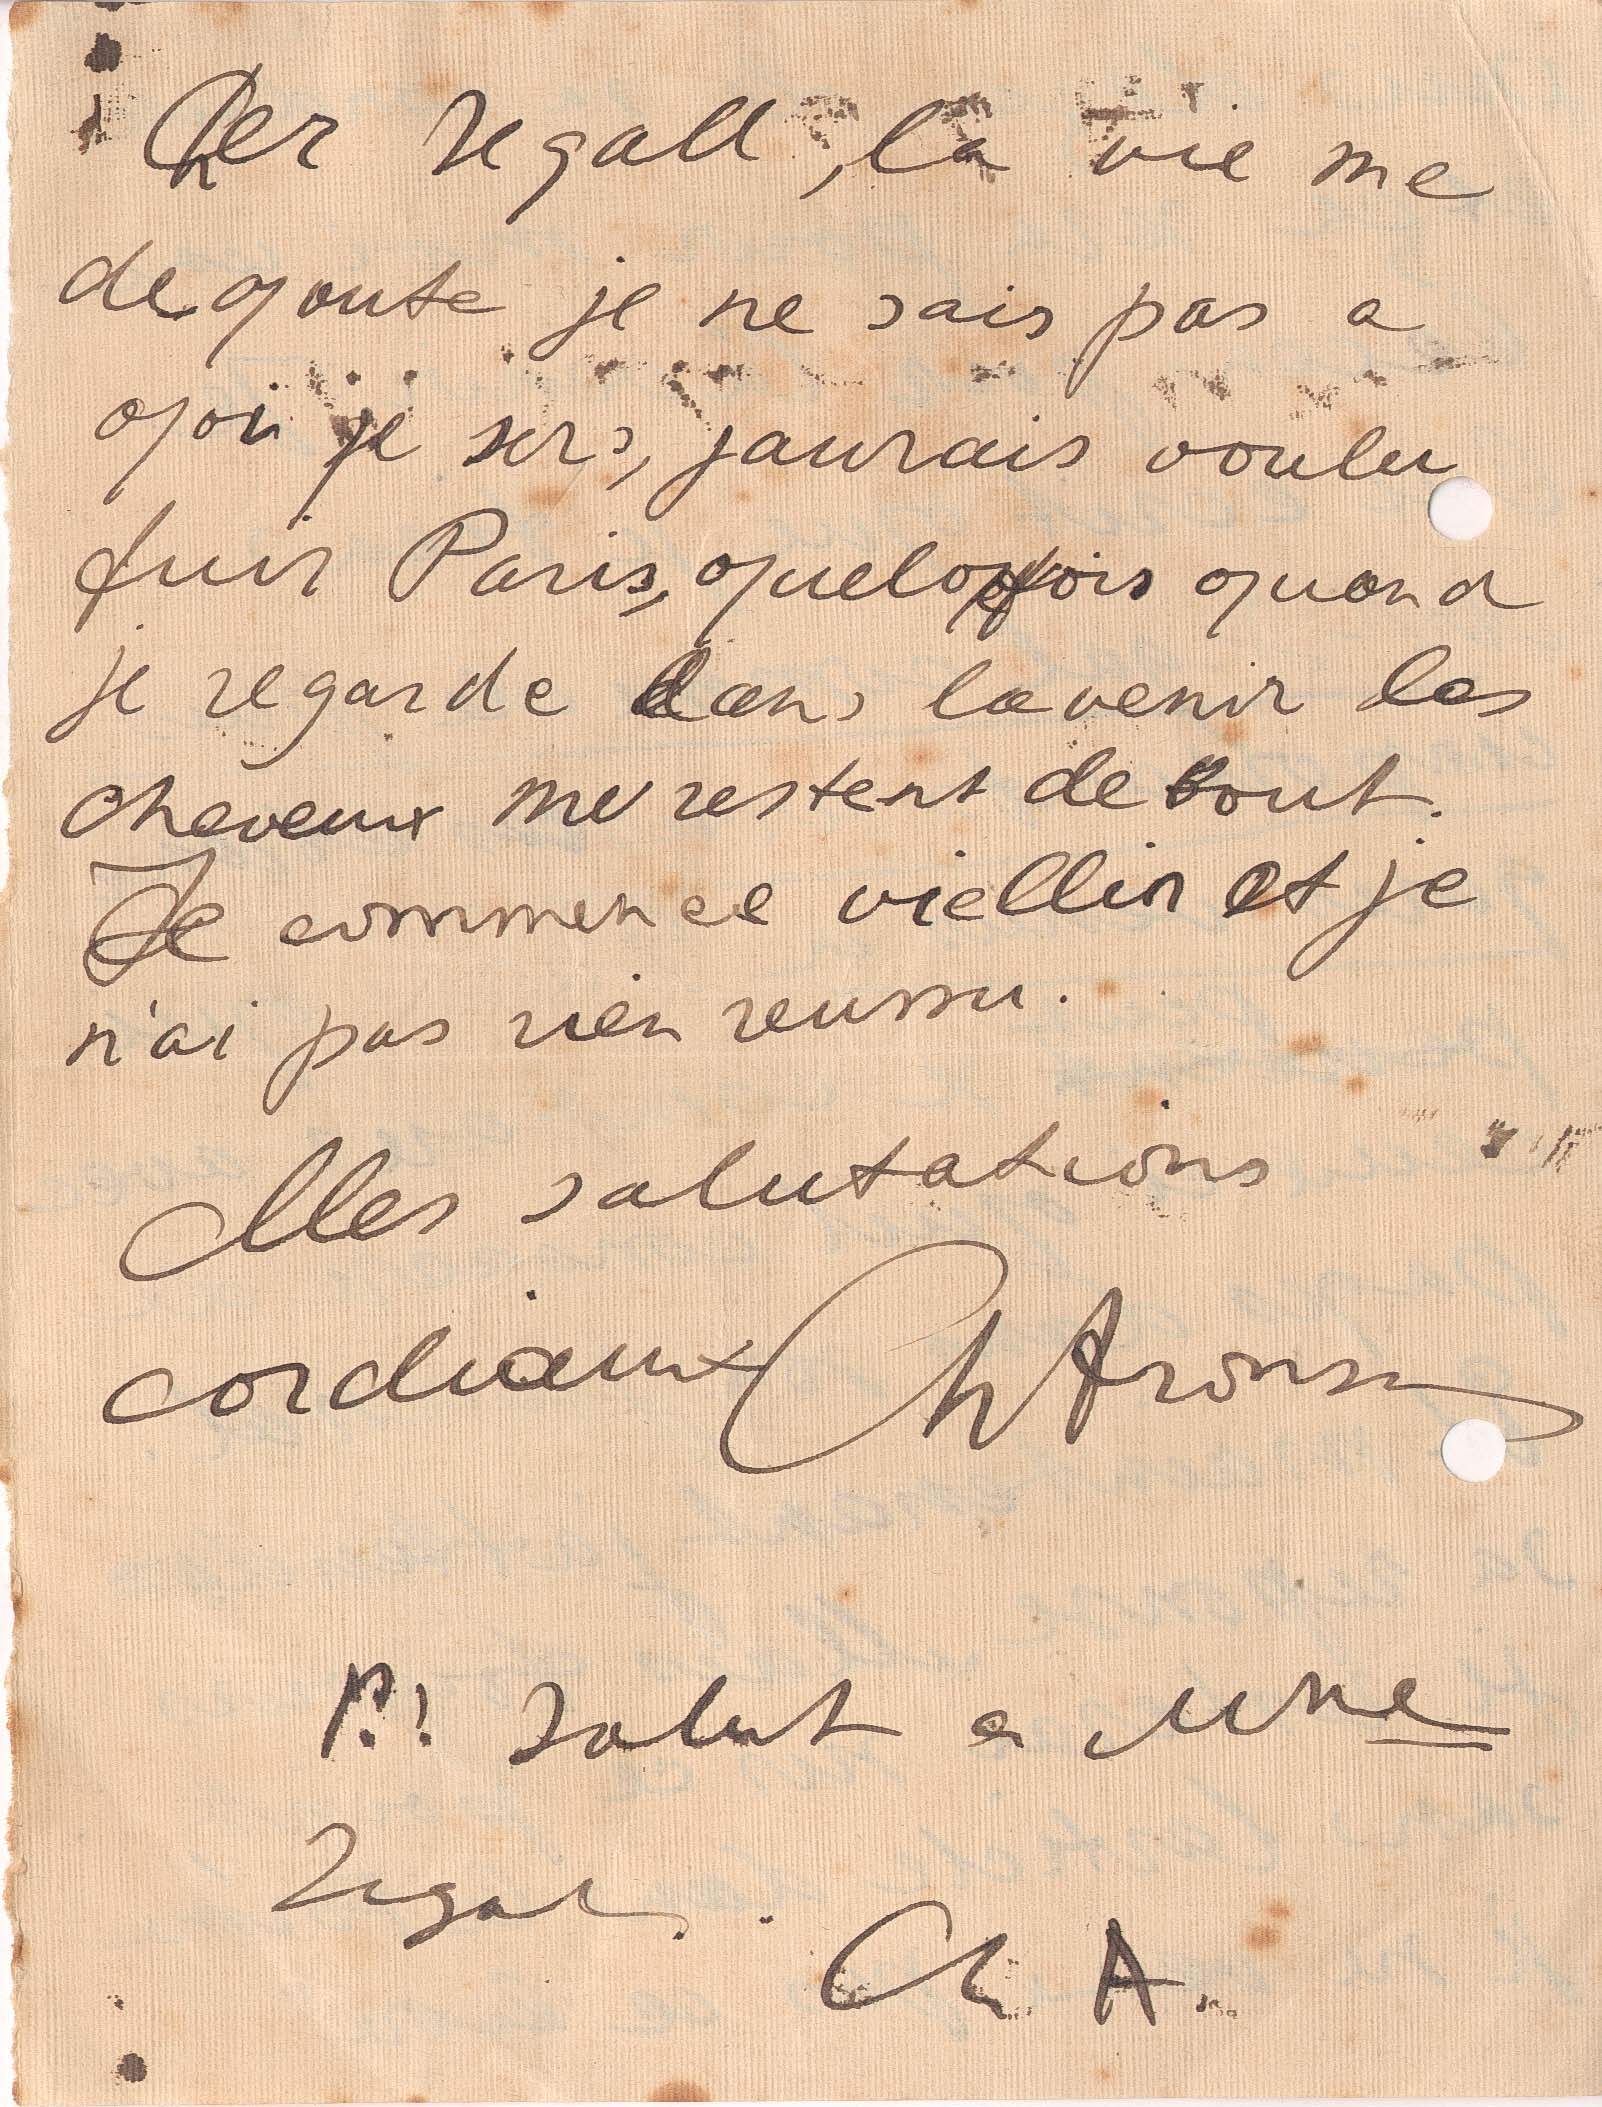 Cher Segall, la vie me
degoute je ne sais pas a
qoi je sers, jaurais voulu
fuir Paris, quelqfois quand
je regarde dans lavenir les
cheveux me restent debout.
Je commence viellir et je
n'ai pas rien reussu.
Mes salutations
cordiaux Ch Aronson
P.! Salut a Mme
Segall. Ch A.